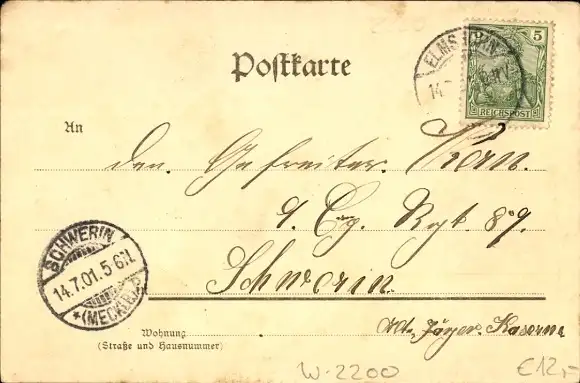 Postkarte
ELMSHORN
14.
5
REICHSPOST
An
den Gefreiter Korn.
9. Cg. Rgt. 89.
Schwerin
Alte Jäger-Kaserne
SCHWERIN
14.7.01.5-6N.
*(MECKLB.)
Wohnung
(Straße und Hausnummer)
W-2200
€12,-